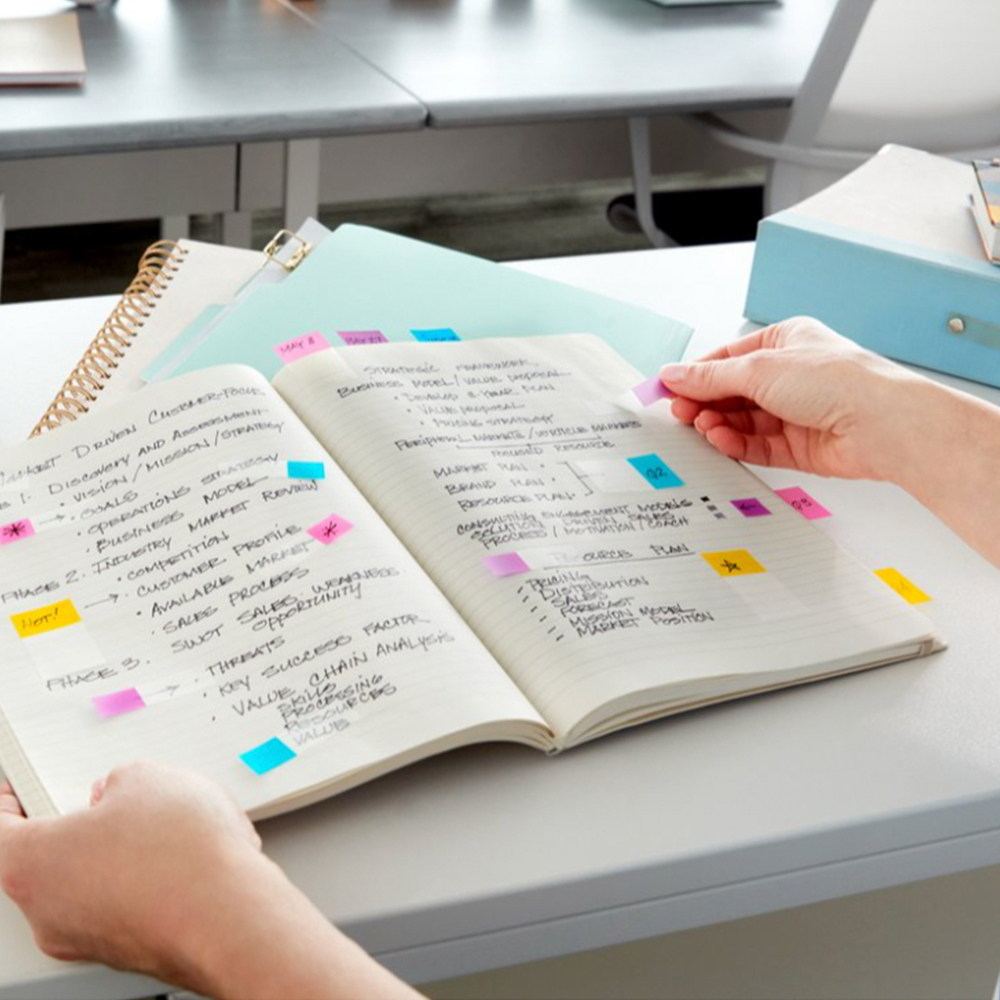 MARKET DRIVEN CUSTOMER-FOCUS
1. DISCOVERY AND ASSESSMENT
• VISION/MISSION/STRATEGY
* → • GOALS
• OPERATIONS STRATEGY
• BUSINESS MODEL
PHASE 2. INDUSTRY MARKET REVIEW
HOT! → • COMPETITION
• CUSTOMER PROFILE *
• AVAILABLE MARKET
• SALES PROCESS
SWOT SALES WEAKNESS
OPPORTUNITY
PHASE 3. • THREATS
→ • KEY SUCCESS FACTOR
• VALUE CHAIN ANALYSIS
SKILLS
PROCESSING
RESOURCES
VALUE
MAY 8
STRATEGIC FRAMEWORK
BUSINESS MODEL/VALUE PROPOSAL
• DEVELOP 3-YEAR PLAN
• VALUE PROPOSAL
• PRICING STRATEGY
PERIPHERAL MARKETS/VERTICLE MARKETS
FOCUSED RESOURCE
MARKET PLAN •
BRAND PLAN •
RESOURCE PLAN •
Q2
CONSULTING ENGAGEMENT MODELS
SOLUTION DRIVEN SALES
PROCESS/MOTIVATION/COACH
← Q3
RESOURCE PLAN
PRICING
DISTRIBUTION
SALES
FORECAST
MISSION MODEL
MARKET POSITION